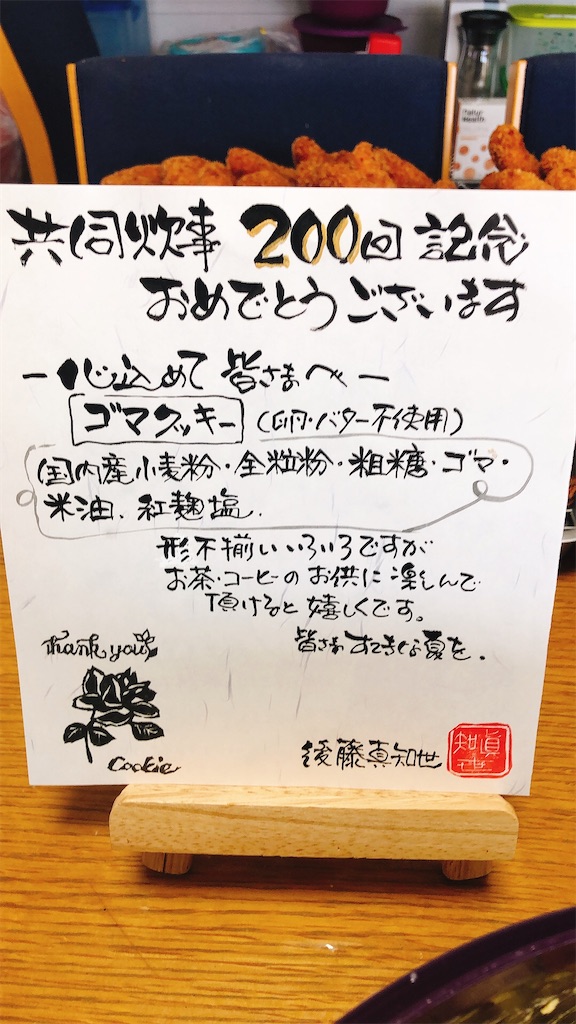 共同炊事 200回 記念
おめでとうございます
ー心込めて 皆さまへー
ゴマクッキー (卵・バター不使用)
国内産小麦粉・全粒粉・粗糖・ゴマ・
米油、紅麹塩、
形不揃いいろいろですが
お茶・コーヒーのお供に楽しんで
頂けると嬉しくです。
皆さま すてきな夏を。
Thank you
Cookie
後藤真知世